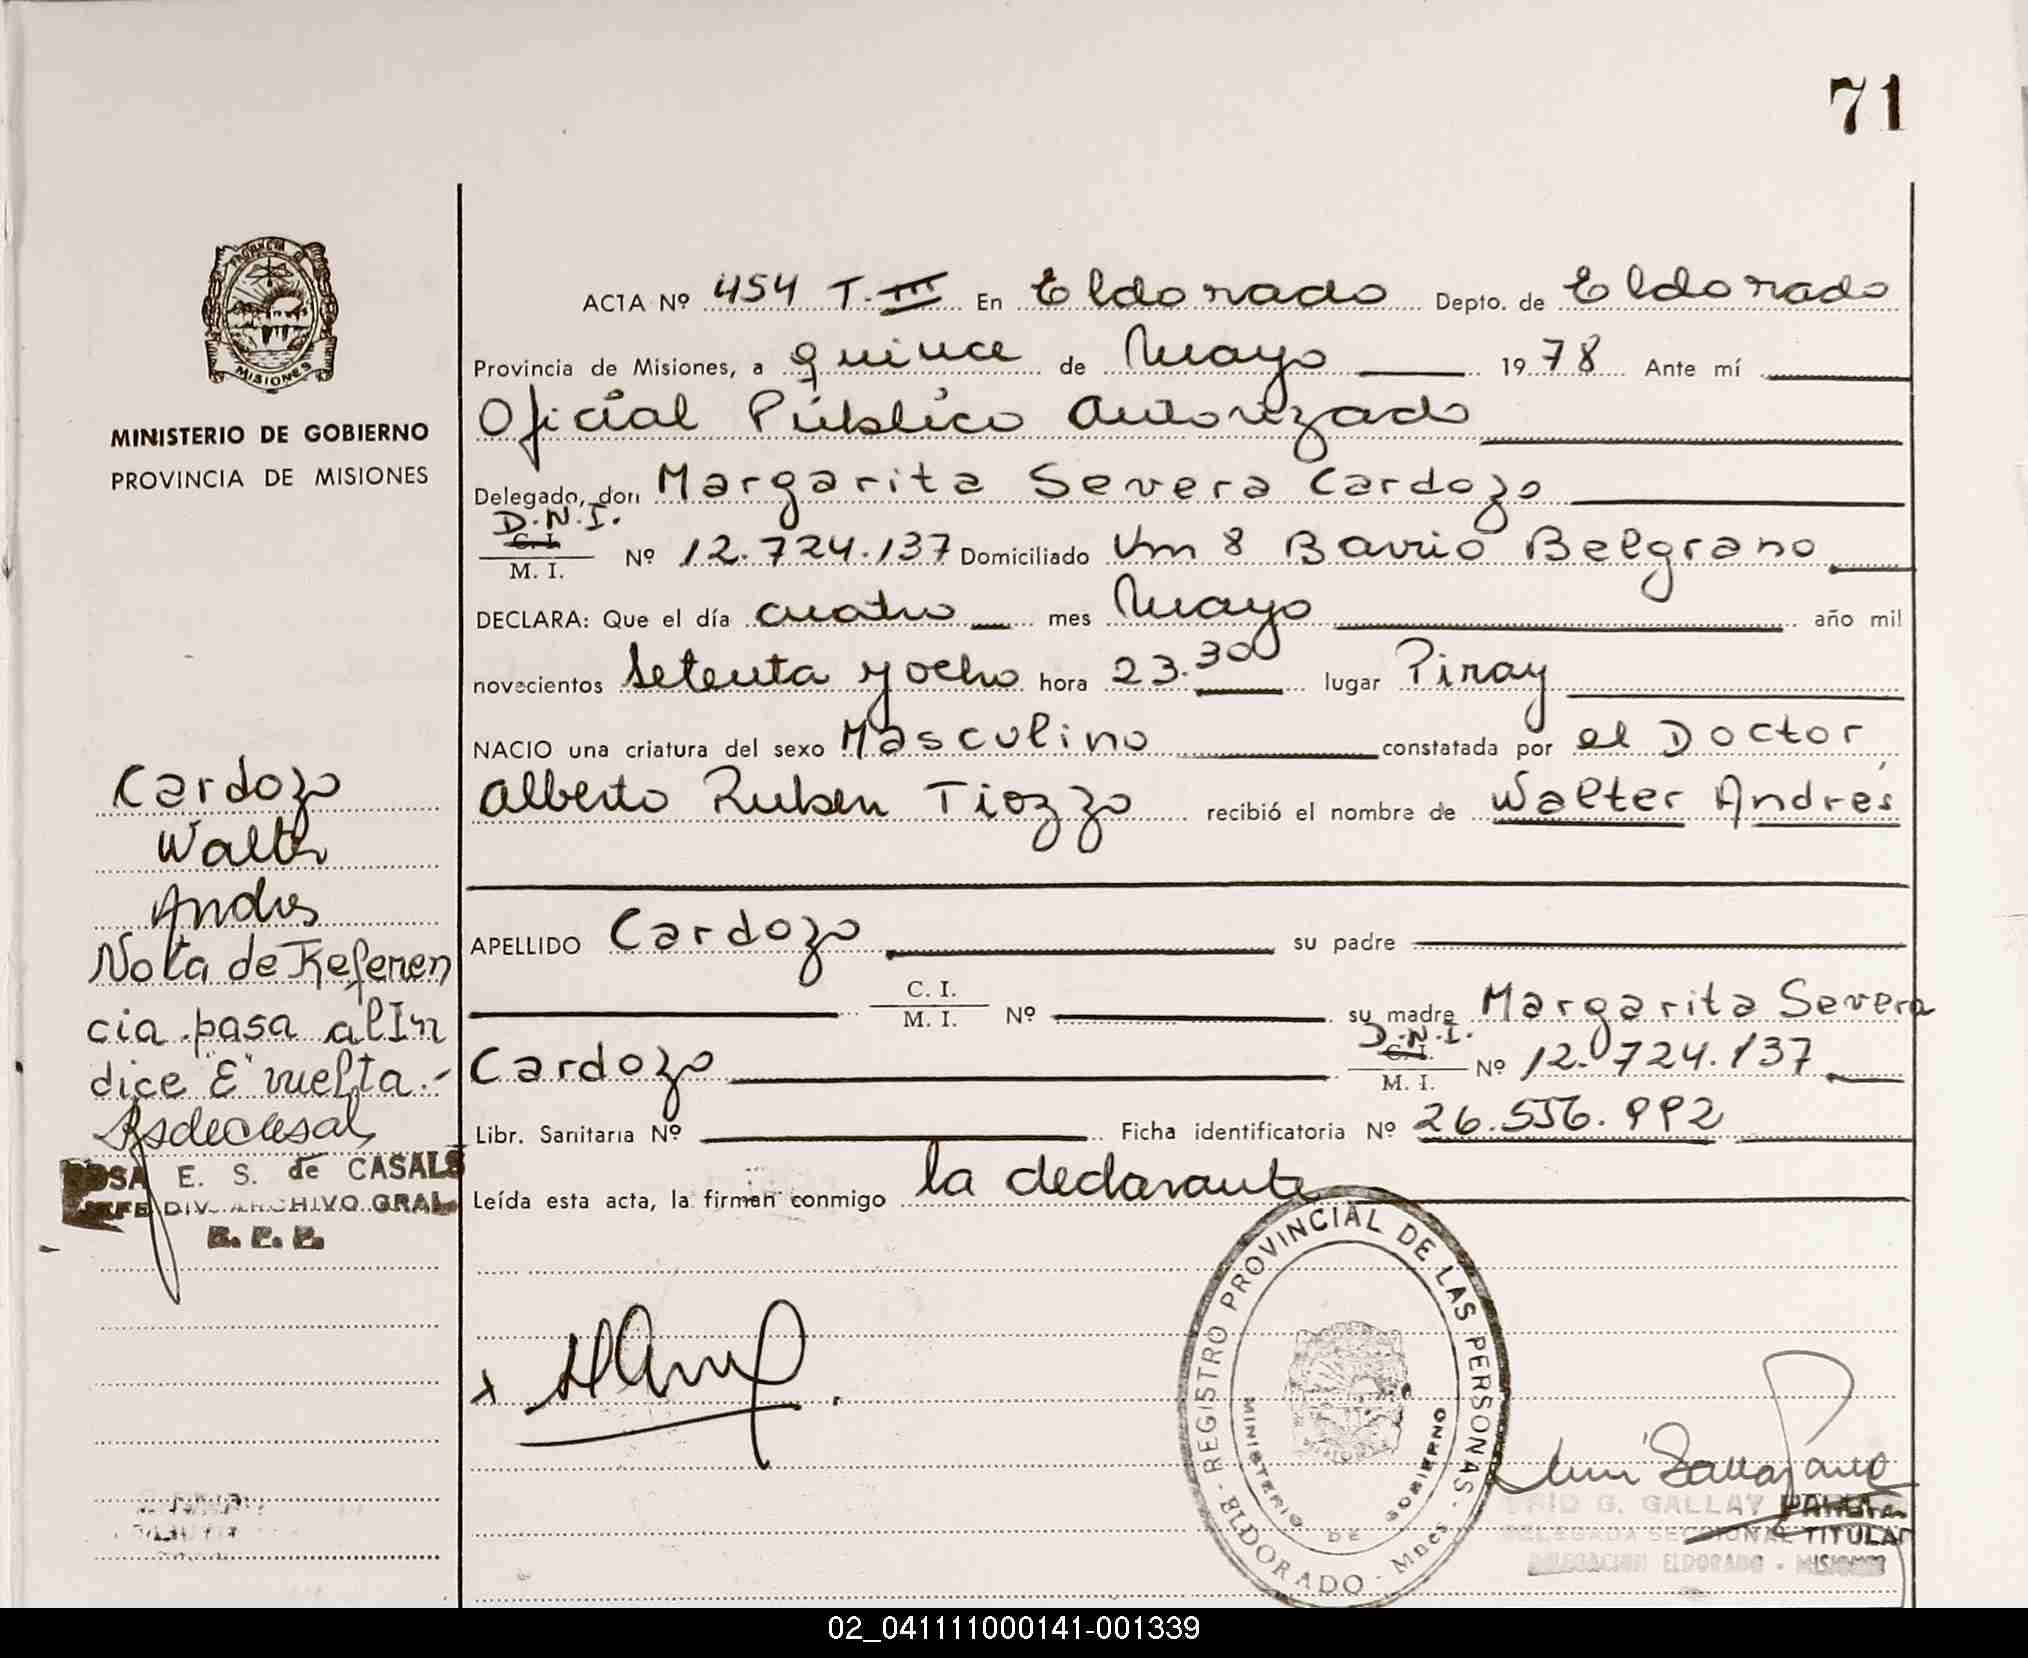 71
PROVINCIA D
MISIONES
MINISTERIO DE GOBIERNO
PROVINCIA DE MISIONES
ACTA Nº 454 T. III En Eldorado Depto. de Eldorado
Provincia de Misiones, a quince de Mayo 1978 Ante mí
Oficial Público Autorizado
Delegado, don Margarita Severa Cardozo
D.N.I.
C. I.
M. I. Nº 12.724.137 Domiciliado Km 8 Barrio Belgrano
DECLARA: Que el día cuatro mes Mayo año mil
novecientos Setenta y ocho hora 23.30 lugar Piray
NACIO una criatura del sexo Masculino constatada por el Doctor
Alberto Ruben Tiozzo recibió el nombre de Walter Andrés
APELLIDO Cardozo su padre
C. I.
M. I. Nº su madre Margarita Severa
Cardozo D.N.I. C. I. M. I. Nº 12.724.137
Libr. Sanitaria Nº Ficha identificatoria Nº 26.556.992
Leída esta acta, la firman conmigo la declarante
Cardozo
Walter
Andrés
Nota de Referen
cia pasa al In
dice "E" vuelta.-
Rsdecasal
ROSA E. S. de CASALS
JEFE DIV. ARCHIVO GRAL.
R. P. P.
x
REGISTRO PROVINCIAL DE LAS PERSONAS - ELDORADO - Mnes
MINISTERIO DE GOBIERNO
G. GALLAY
DELEGADA SECCIONAL TITULAR
DELEGACION ELDORADO - MISIONES
02_041111000141-001339